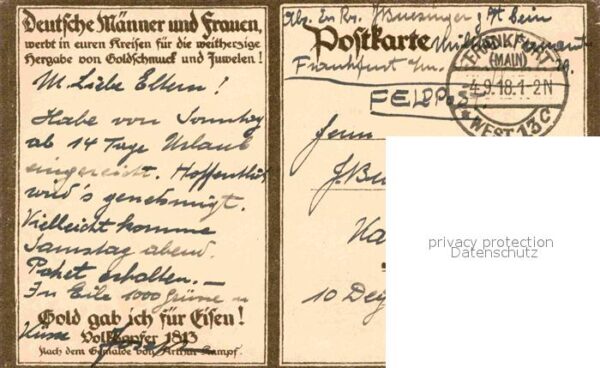 Deutsche Männer und Frauen,
werbt in euren Kreisen für die weitherzige
Hergabe von Goldschmuck und Juwelen!
M Liebe Eltern!
Habe von Sonntag
ab 14 Tage Urlaub
eingereicht. Hoffentlich
wird's genehmigt.
Vielleicht komme
Samstag abend.
Paket erhalten. —
In Eile 1000 Grüße u
Gold gab ich für Eisen!
Küsse
Volksopfer 1813
Nach dem Gemälde von Arthur Kampf.
Abs.
Postkarte
Frankfurt a/m.
FELDPOST
FRANKFURT
(MAIN)
-4.9.18.1-2N
WEST 13 c
privacy protection
Datenschutz